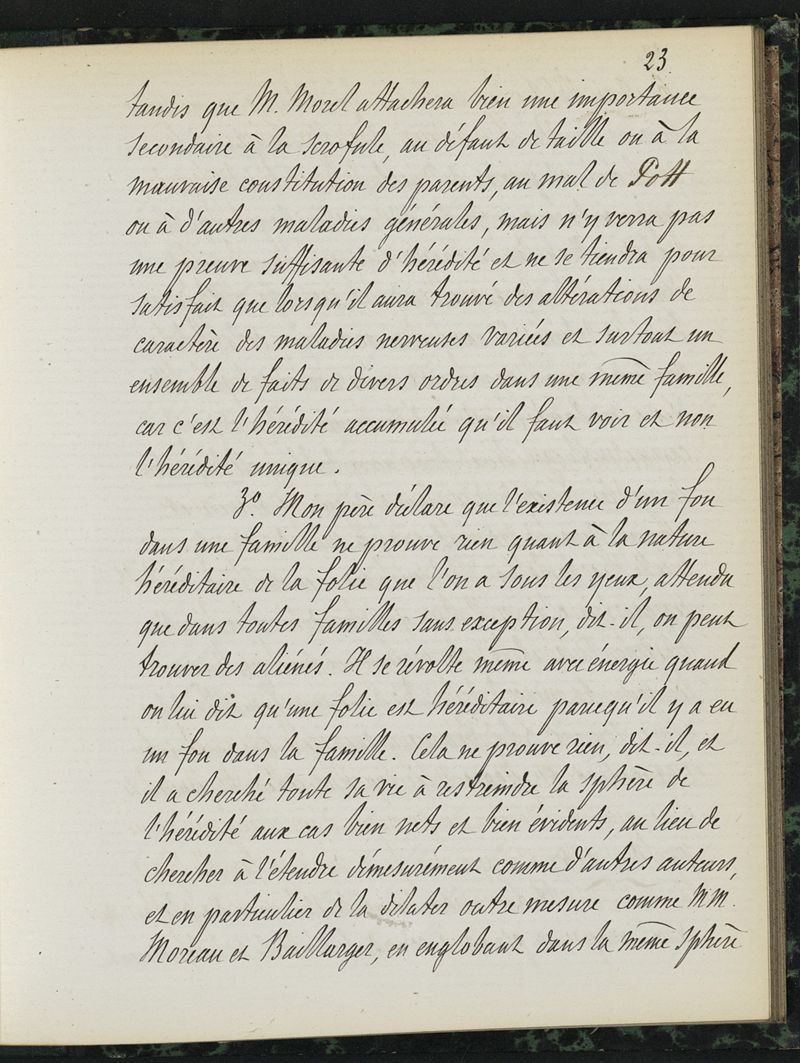 23
tandis que M. Morel attachera bien une importance
secondaire à la scrofule, au défaut de taille ou à la
mauvaise constitution des parents, au mal de Pott
ou à d'autres maladies générales, mais n'y verra pas
une preuve suffisante d'hérédité et ne se tiendra pour
satisfait que lorsqu'il aura trouvé des altérations de
caractère des maladies nerveuses variées et surtout un
ensemble de faits de divers ordres dans une même famille,
car c'est l'hérédité accumulée qu'il faut voir et non
l'hérédité unique.
3º. Mon père déclare que l'existence d'un fou
dans une famille ne prouve rien quant à la nature
héréditaire de la folie que l'on a sous les yeux, attendu
que dans toutes familles sans exception, dit-il, on peut
trouver des aliénés. Il se révolte même avec énergie quand
on lui dit qu'une folie est héréditaire parcequ'il y a eu
un fou dans la famille. Cela ne prouve rien, dit-il, et
il a cherché toute sa vie à restreindre la sphère de
l'hérédité aux cas bien nets et bien évidents, au lieu de
chercher à l'étendre démesurément comme d'autres auteurs,
et en particulier de la dilater outre mesure comme MM.
Moreau et Baillarger, en englobant dans la même sphère